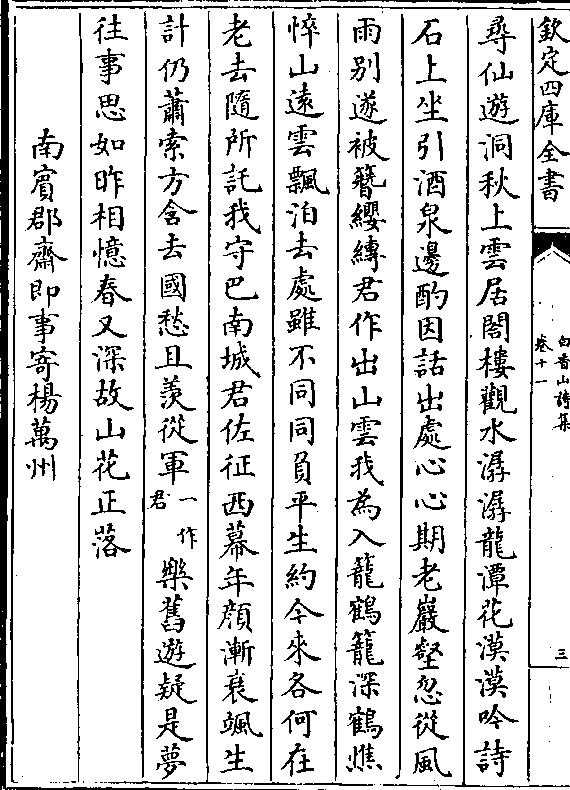 欽定四庫全書
白香山詩集
卷十一
三
尋仙遊洞秋上雲居閣樓觀水潺潺龍潭花漠漠吟詩
石上坐引酒泉邊酌因話出處心心期老巖壑忽從風
雨别遂被簪纓縛君作出山雲我為入籠鶴籠深鶴憔
悴山遠雲飄泊去處雖不同同負平生約今來各何在
老去隨所託我守巴南城君佐征西幕年顔漸衰颯生
計仍蕭索方含去國愁且羡從軍一作君樂舊遊疑是夢
往事思如昨相憶春又深故山花正落
南賓郡齋即事寄楊萬州